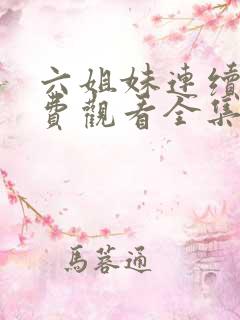 六姐妹連續
費觀看全集
馬蓉通